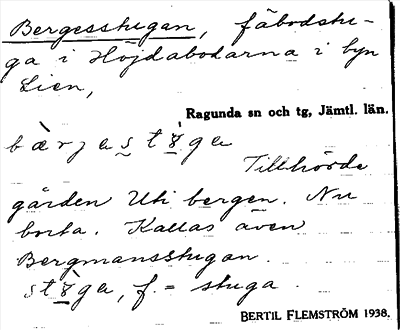 Bergesstugan, fäbodstu-
ga i Höjdabodarna i byn
Lien,
Ragunda sn och tg, Jämtl. län.
bæ̀rjestɤ́ga
Tillhörde
gården Uti bergen. Nu
borta. Kallas även
Bergmansstugan.
stɤ̀ga, f. = stuga.
BERTIL FLEMSTRÖM 1938.